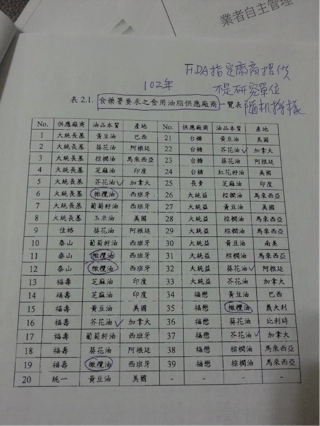 業者自主管理
FDA指定廠商提供
不是研究單位
隨机採樣
102年
表 2.1. 食藥署要求之食用油脂供應廠商一覽表
No. 供應廠商 油品本質 產地 No. 供應廠商 油品本質 產地
1 大統長基 黃豆油 巴西 21 台糖 黃豆油 美國
2 大統長基 葵花油 阿根廷 22 台糖 芥花油 加拿大
3 大統長基 棕櫚油 馬來西亞 23 台糖 葵花油 阿根廷
4 大統長基 芝麻油 印度 24 台糖 紅花籽油 美國
5 大統長基 芥花油 加拿大 25 長青 芝麻油 印度
6 大統長基 橄欖油 西班牙 26 大統益 棕櫚油 馬來西亞
7 大統長基 葡萄籽油 西班牙 27 大統益 黃豆油 美國
8 大統長基 玉米油 美國 28 大統益 棕櫚油 馬來西亞
9 佳格 葵花油 阿根廷 29 大統益 棕櫚油 馬來西亞
10 泰山 葡萄籽油 西班牙 30 大統益 黃豆油 南美
11 泰山 橄欖油 西班牙 31 大統益 棕櫚油 馬來西亞
12 泰山 橄欖油 西班牙 32 大統益 葵花油 阿根廷
13 福壽 芝麻油 印度 33 大統益 芥花油 加拿大
14 福壽 芝麻油 印度 34 福懋 黃豆油 巴西
15 福壽 黃豆油 美國 35 福懋 橄欖油 義大利
16 福壽 芥花油 加拿大 36 福懋 葵花油 比利時
17 福壽 葡萄籽油 西班牙 37 福懋 芥花油 加拿大
18 福壽 葵花油 阿根廷 38 福懋 棕櫚油 馬來西亞
19 福壽 橄欖油 西班牙 39 福懋 棕櫚油 馬來西亞
20 統一 黃豆油 美國 - - - -